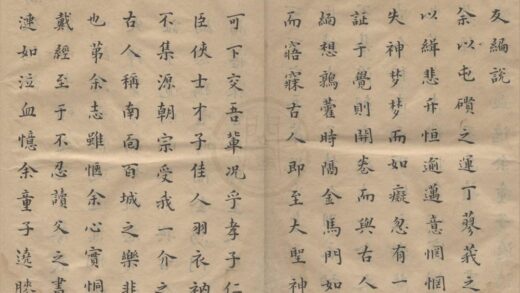 友編說
余以屯躓之運丁蓼莪之
以緝悲斥恒逾邁意惘惘
失神梦梦而如癡忽有一
証于覺則開卷而與古人
緬想鶉藿時隔金馬門如
而寤寐古人即至大聖神
可下交吾輩况乎孝子仁
臣俠士才子佳人羽衣衲
不集源朝宗受我一介之
古人稱南面百城之樂非
也第余志雖愜余心實恫
戴經至于不忍讀父之書
漣如泣血憶余童子遶膝